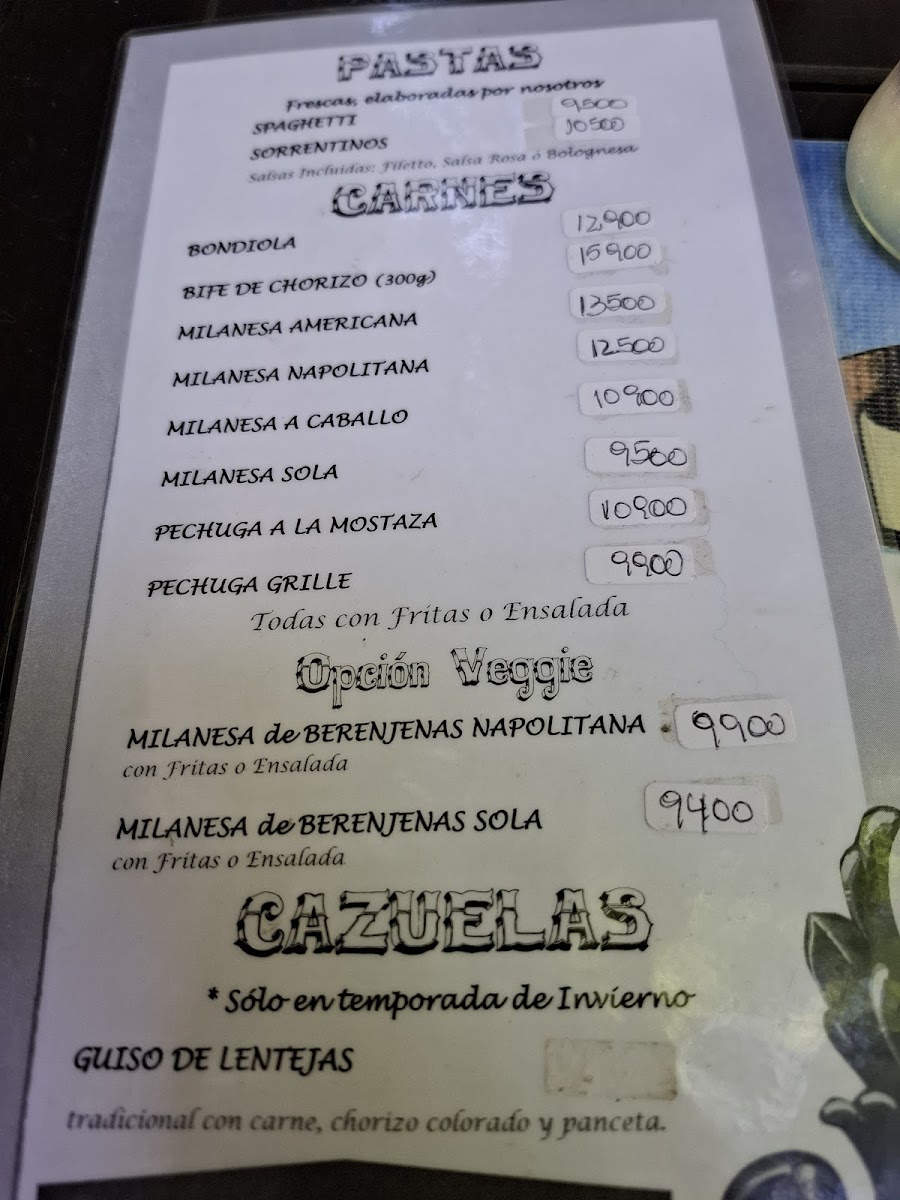 PASTAS
Frescas, elaboradas por nosotros
SPAGHETTI 9500
SORRENTINOS 10500
Salsas Incluidas: Filetto, Salsa Rosa ó Bolognesa
CARNES
BONDIOLA 12900
BIFE DE CHORIZO (300g) 15900
MILANESA AMERICANA 13500
MILANESA NAPOLITANA 12500
MILANESA A CABALLO 10900
MILANESA SOLA 9500
PECHUGA A LA MOSTAZA 10900
PECHUGA GRILLE 9900
Todas con Fritas o Ensalada
Opción Veggie
MILANESA de BERENJENAS NAPOLITANA 9900
con Fritas o Ensalada
MILANESA de BERENJENAS SOLA 9400
con Fritas o Ensalada
CAZUELAS
* Sólo en temporada de Invierno
GUISO DE LENTEJAS
tradicional con carne, chorizo colorado y panceta.